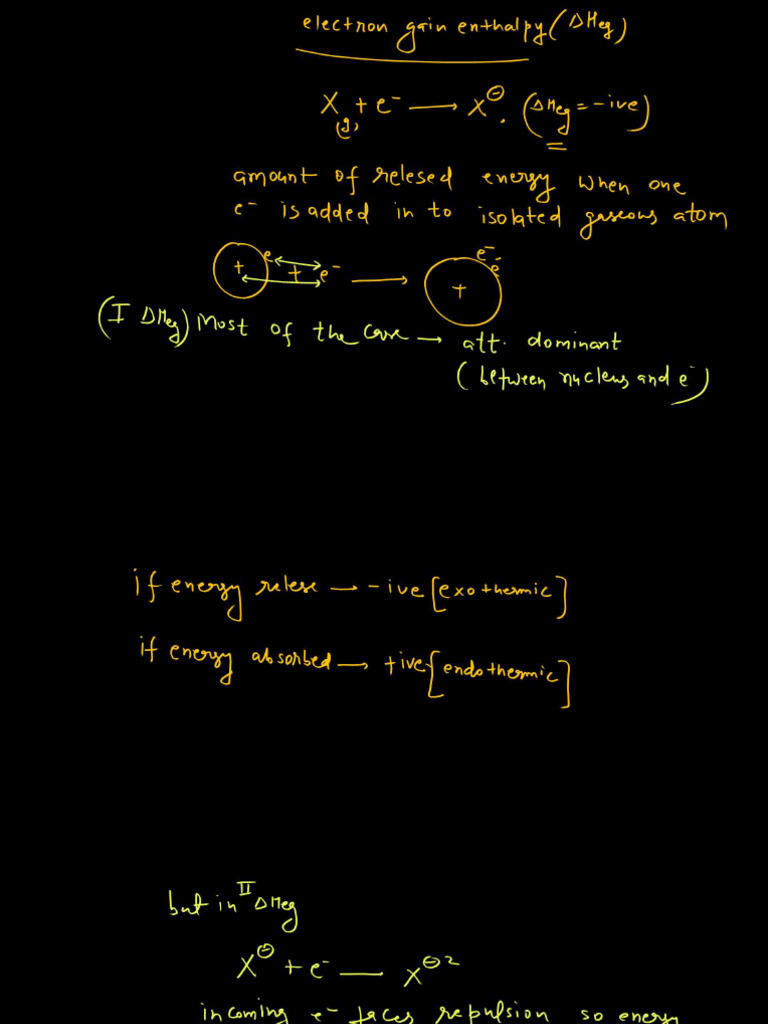 electron gain enthalpy (ΔHeg)
X(g) + e⁻ → X⊖. (ΔHeg = -ive)
amount of relesed energy when one
e⁻ is added in to isolated gaseous atom
+ e + e⁻ → + e⁻ e⁻
(I ΔHeg) Most of the case → att. dominant
(between nucleus and e⁻)
if energy relese → -ive [exothermic]
if energy absorbed → +ive [endothermic]
but in II ΔHeg
X⊖ + e⁻ — X⊖2
incoming e⁻ faces repulsion so energy